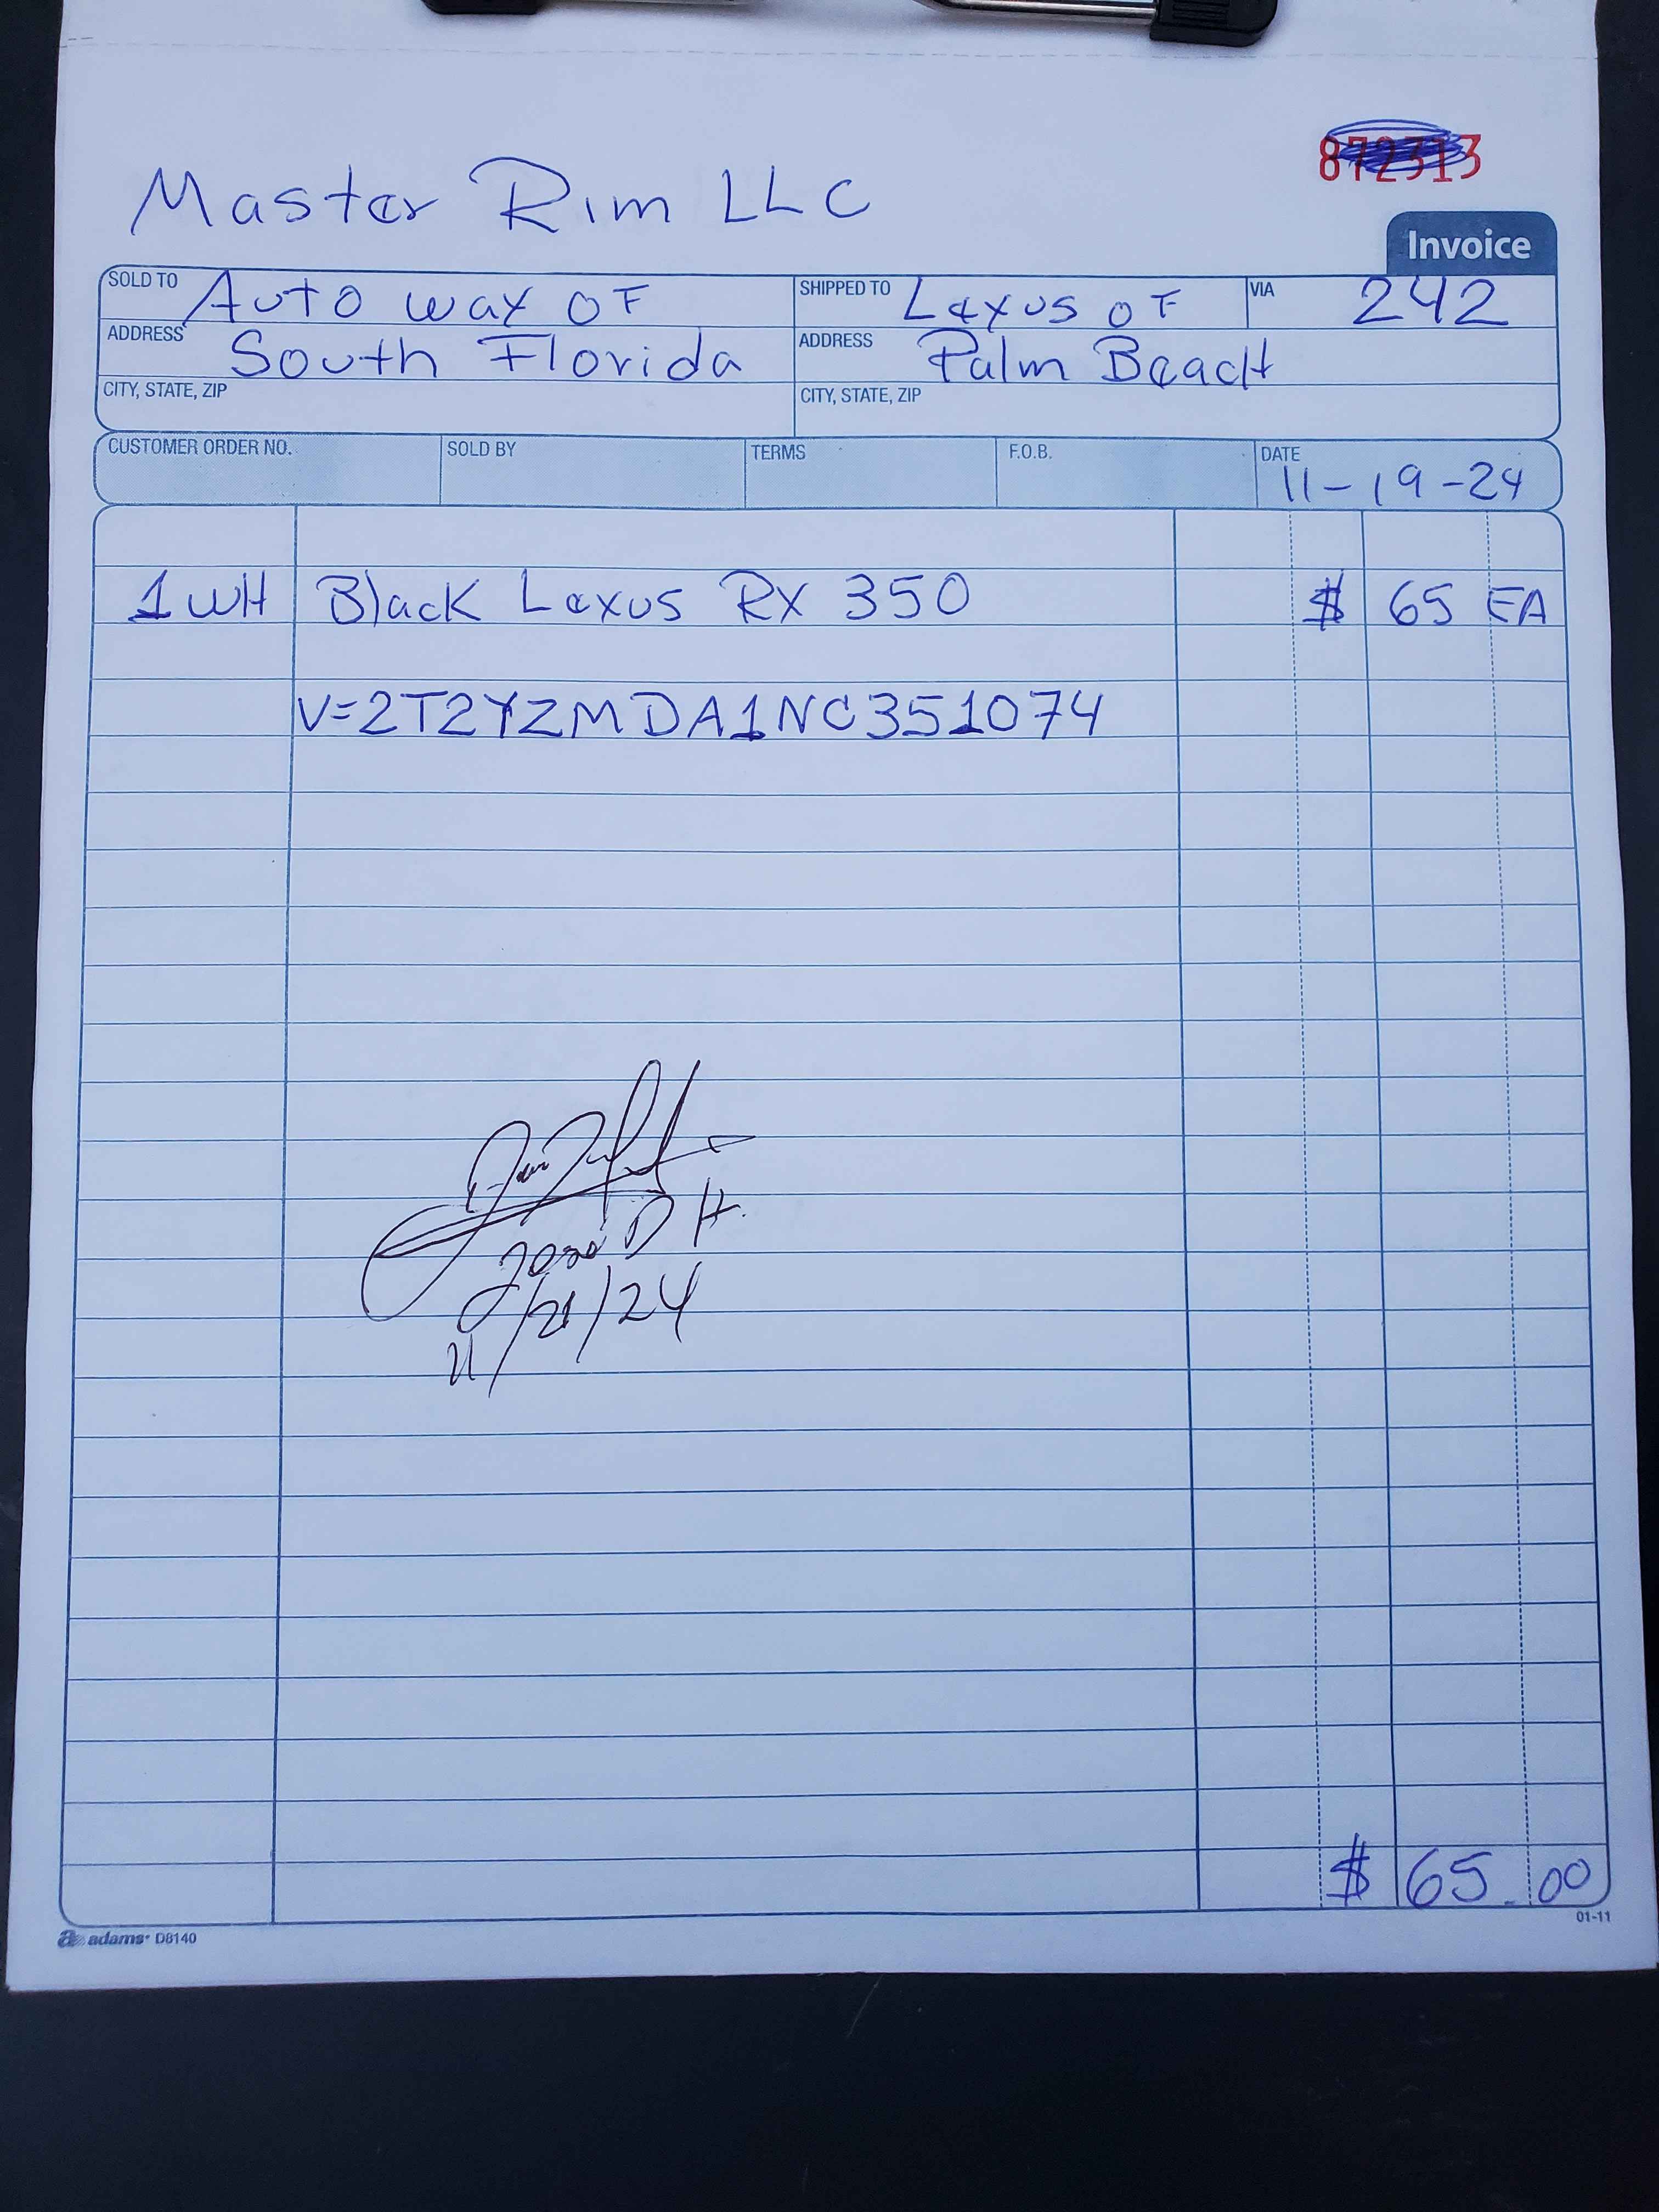 872313
Master Rim LLC
Invoice
SOLD TO Auto way OF SHIPPED TO Lexus OF VIA 242
ADDRESS South Florida ADDRESS Palm Beach
CITY, STATE, ZIP CITY, STATE, ZIP
CUSTOMER ORDER NO. SOLD BY TERMS F.O.B. DATE 11-19-24
1 WH Black Lexus RX 350 $ 65 EA
V=2T2YZMDA1NC351074
Jose D H.
11/21/24
$ 65.00
01-11
adams D8140